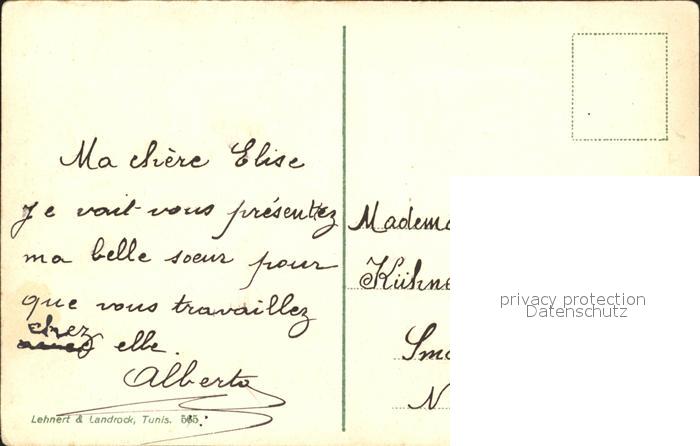 Ma chère Elise
Je vait vous présentez
ma belle soeur pour
que vous travaillez
chez elle.
Alberto
Lehnert & Landrock, Tunis. 565.
Madem
Kühne
Sm
N
privacy protection
Datenschutz